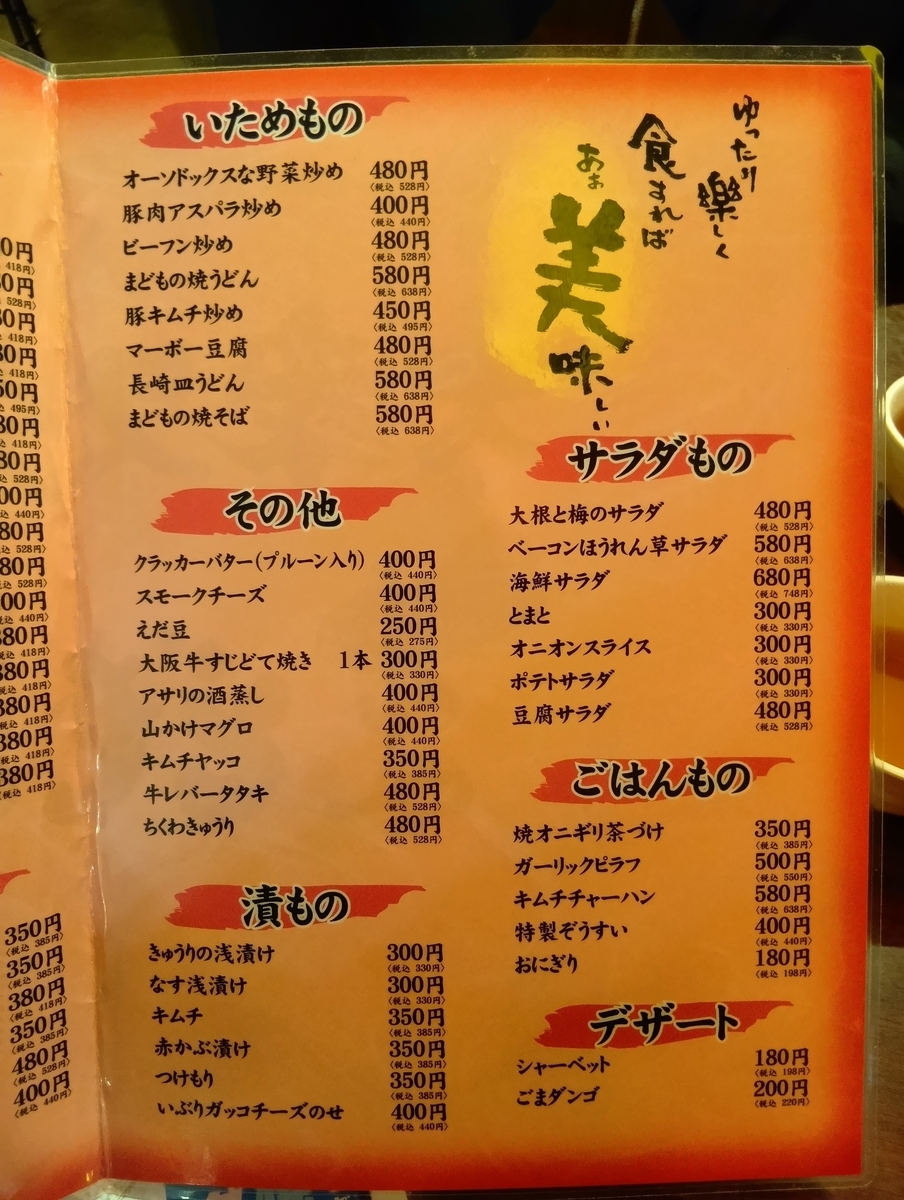 いためもの
オーソドックスな野菜炒め 480円
〈税込 528円〉
豚肉アスパラ炒め 400円
〈税込 440円〉
ビーフン炒め 480円
〈税込 528円〉
まどもの焼うどん 580円
〈税込 638円〉
豚キムチ炒め 450円
〈税込 495円〉
マーボー豆腐 480円
〈税込 528円〉
長崎皿うどん 580円
〈税込 638円〉
まどもの焼そば 580円
〈税込 638円〉
その他
クラッカーバター(プルーン入り) 400円
〈税込 440円〉
スモークチーズ 400円
〈税込 440円〉
えだ豆 250円
〈税込 275円〉
大阪牛すじどて焼き 1本 300円
〈税込 330円〉
アサリの酒蒸し 400円
〈税込 440円〉
山かけマグロ 400円
〈税込 440円〉
キムチヤッコ 350円
〈税込 385円〉
牛レバータタキ 480円
〈税込 528円〉
ちくわきゅうり 480円
〈税込 528円〉
漬もの
きゅうりの浅漬け 300円
〈税込 330円〉
なす浅漬け 300円
〈税込 330円〉
キムチ 350円
〈税込 385円〉
赤かぶ漬け 350円
〈税込 385円〉
つけもり 350円
〈税込 385円〉
いぶりガッコチーズのせ 400円
〈税込 440円〉
ゆったり
樂しく
食すれば
あぁ
美味しい
サラダもの
大根と梅のサラダ 480円
〈税込 528円〉
ベーコンほうれん草サラダ 580円
〈税込 638円〉
海鮮サラダ 680円
〈税込 748円〉
とまと 300円
〈税込 330円〉
オニオンスライス 300円
〈税込 330円〉
ポテトサラダ 300円
〈税込 330円〉
豆腐サラダ 480円
〈税込 528円〉
ごはんもの
焼オニギリ茶づけ 350円
〈税込 385円〉
ガーリックピラフ 500円
〈税込 550円〉
キムチチャーハン 580円
〈税込 638円〉
特製ぞうすい 400円
〈税込 440円〉
おにぎり 180円
〈税込 198円〉
デザート
シャーベット 180円
〈税込 198円〉
ごまダンゴ 200円
〈税込 220円〉
380円
〈税込 418円〉
380円
〈税込 418円〉
380円
〈税込 418円〉
380円
〈税込 418円〉
380円
〈税込 418円〉
350円
〈税込 385円〉
350円
〈税込 385円〉
380円
〈税込 418円〉
350円
〈税込 385円〉
480円
〈税込 528円〉
400円
〈税込 440円〉